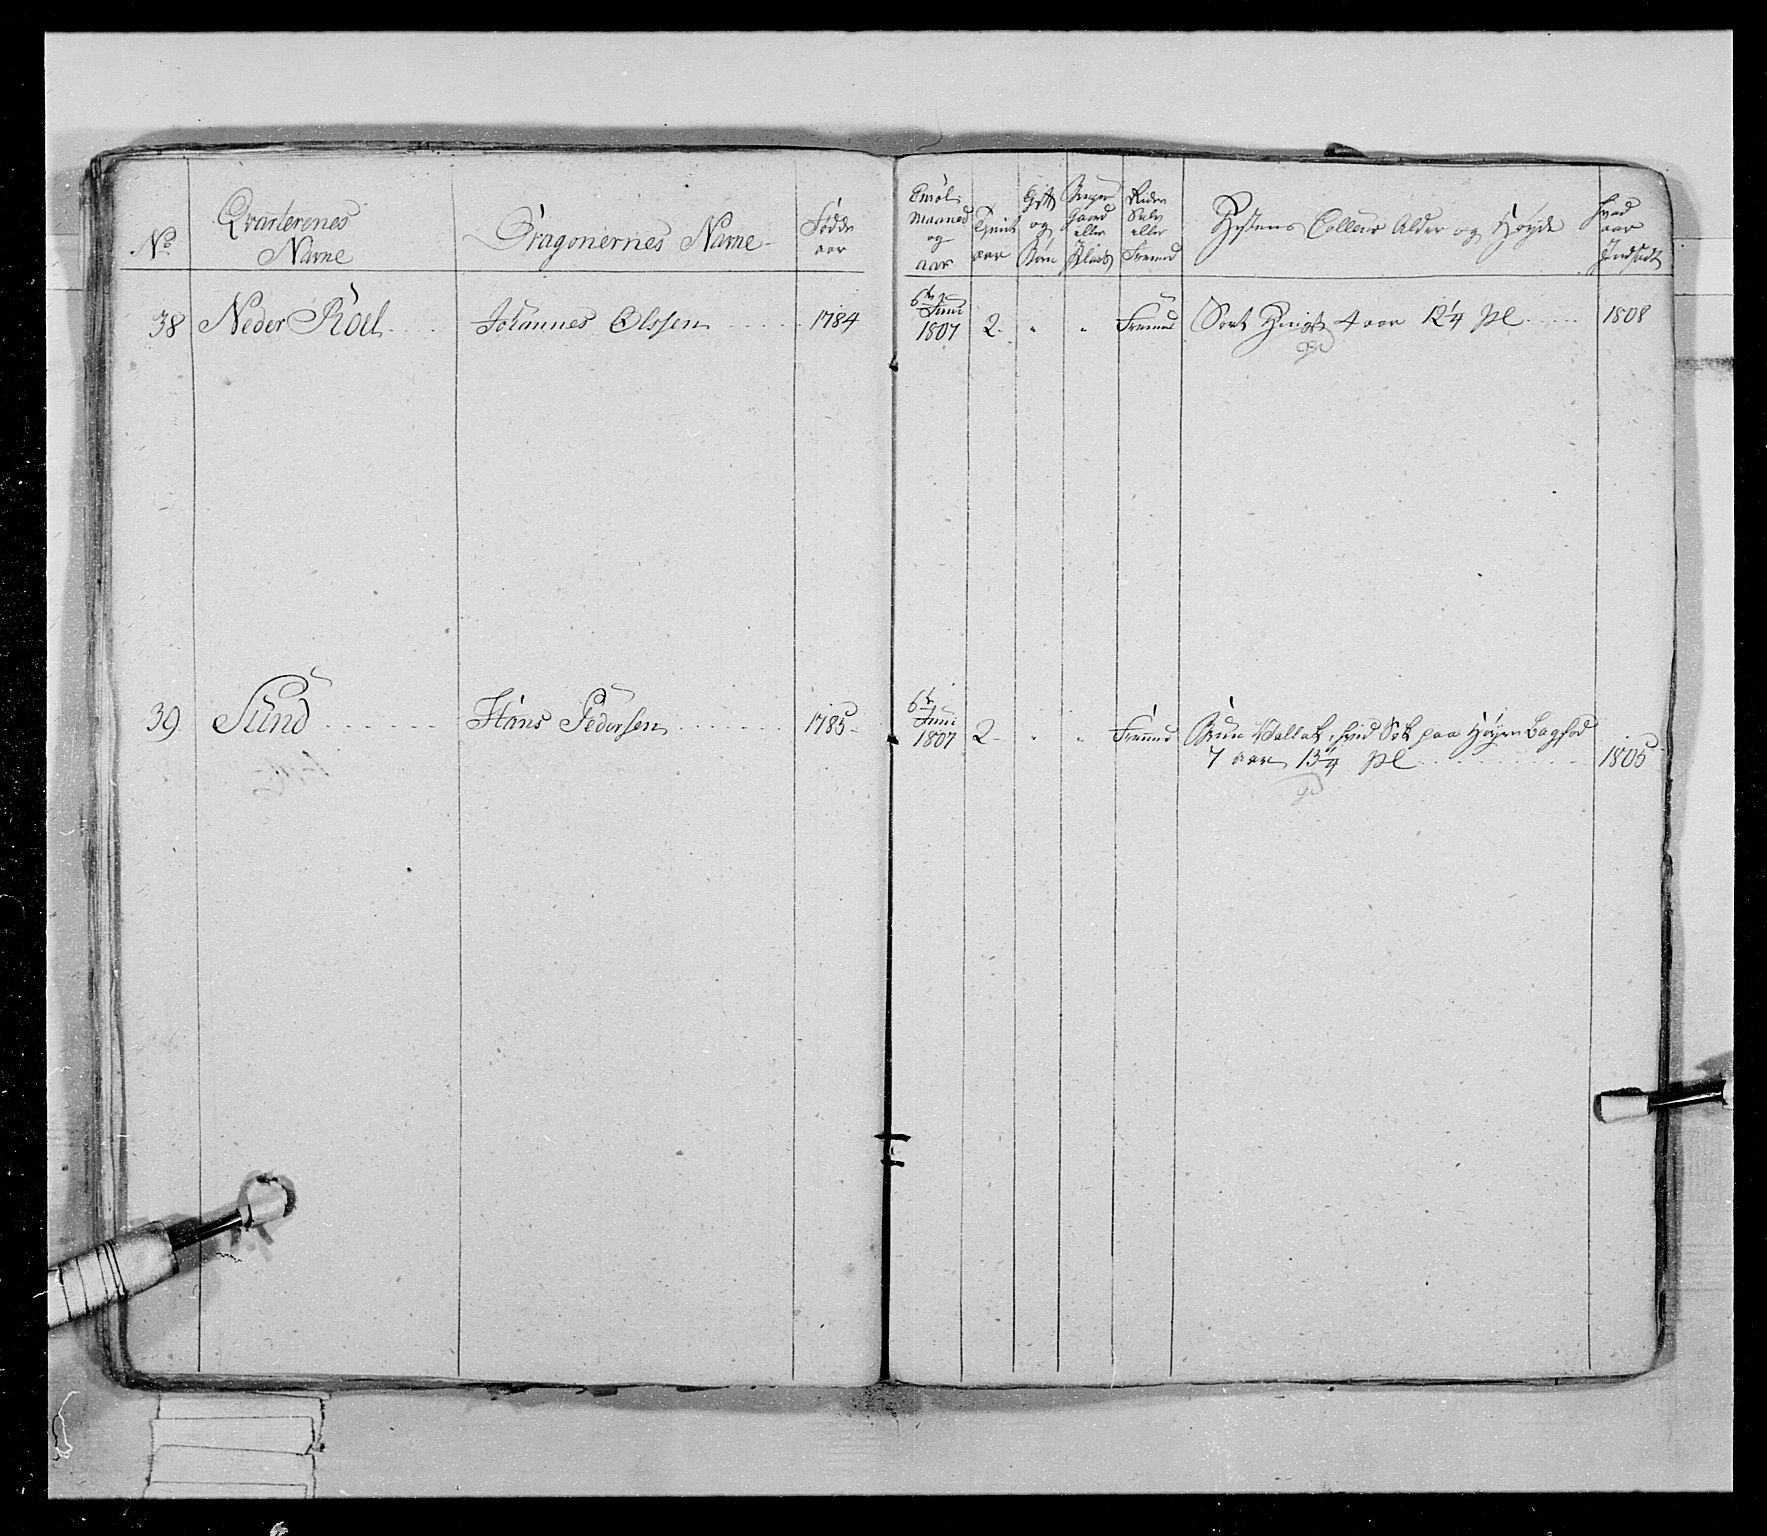 No
Qvarterenes
Navne
Dragonernes Navne
Fødde
aar
Enrol.
Maaned
og
aar
Tjent
aar
Gift
og
Børn
Gaard
eller
Plads
Rider
Selv
eller
Fremd
Hestens Colleur Alder og Høyde
Hvad
aar
Indsadt
38 Neder Roel Johannes Olssen 1784
6te
Juni
1807 2 " " Fremd Sort Hingst 4 aar 12 1/4 Pl 1808
39 Sund Hans Pedersen 1785
6te
Juni
1807 2 " " Fremd Brun Vallak, hvid Sok paa Høyre Bagfod
7 aar 13 1/4 Pl 1805